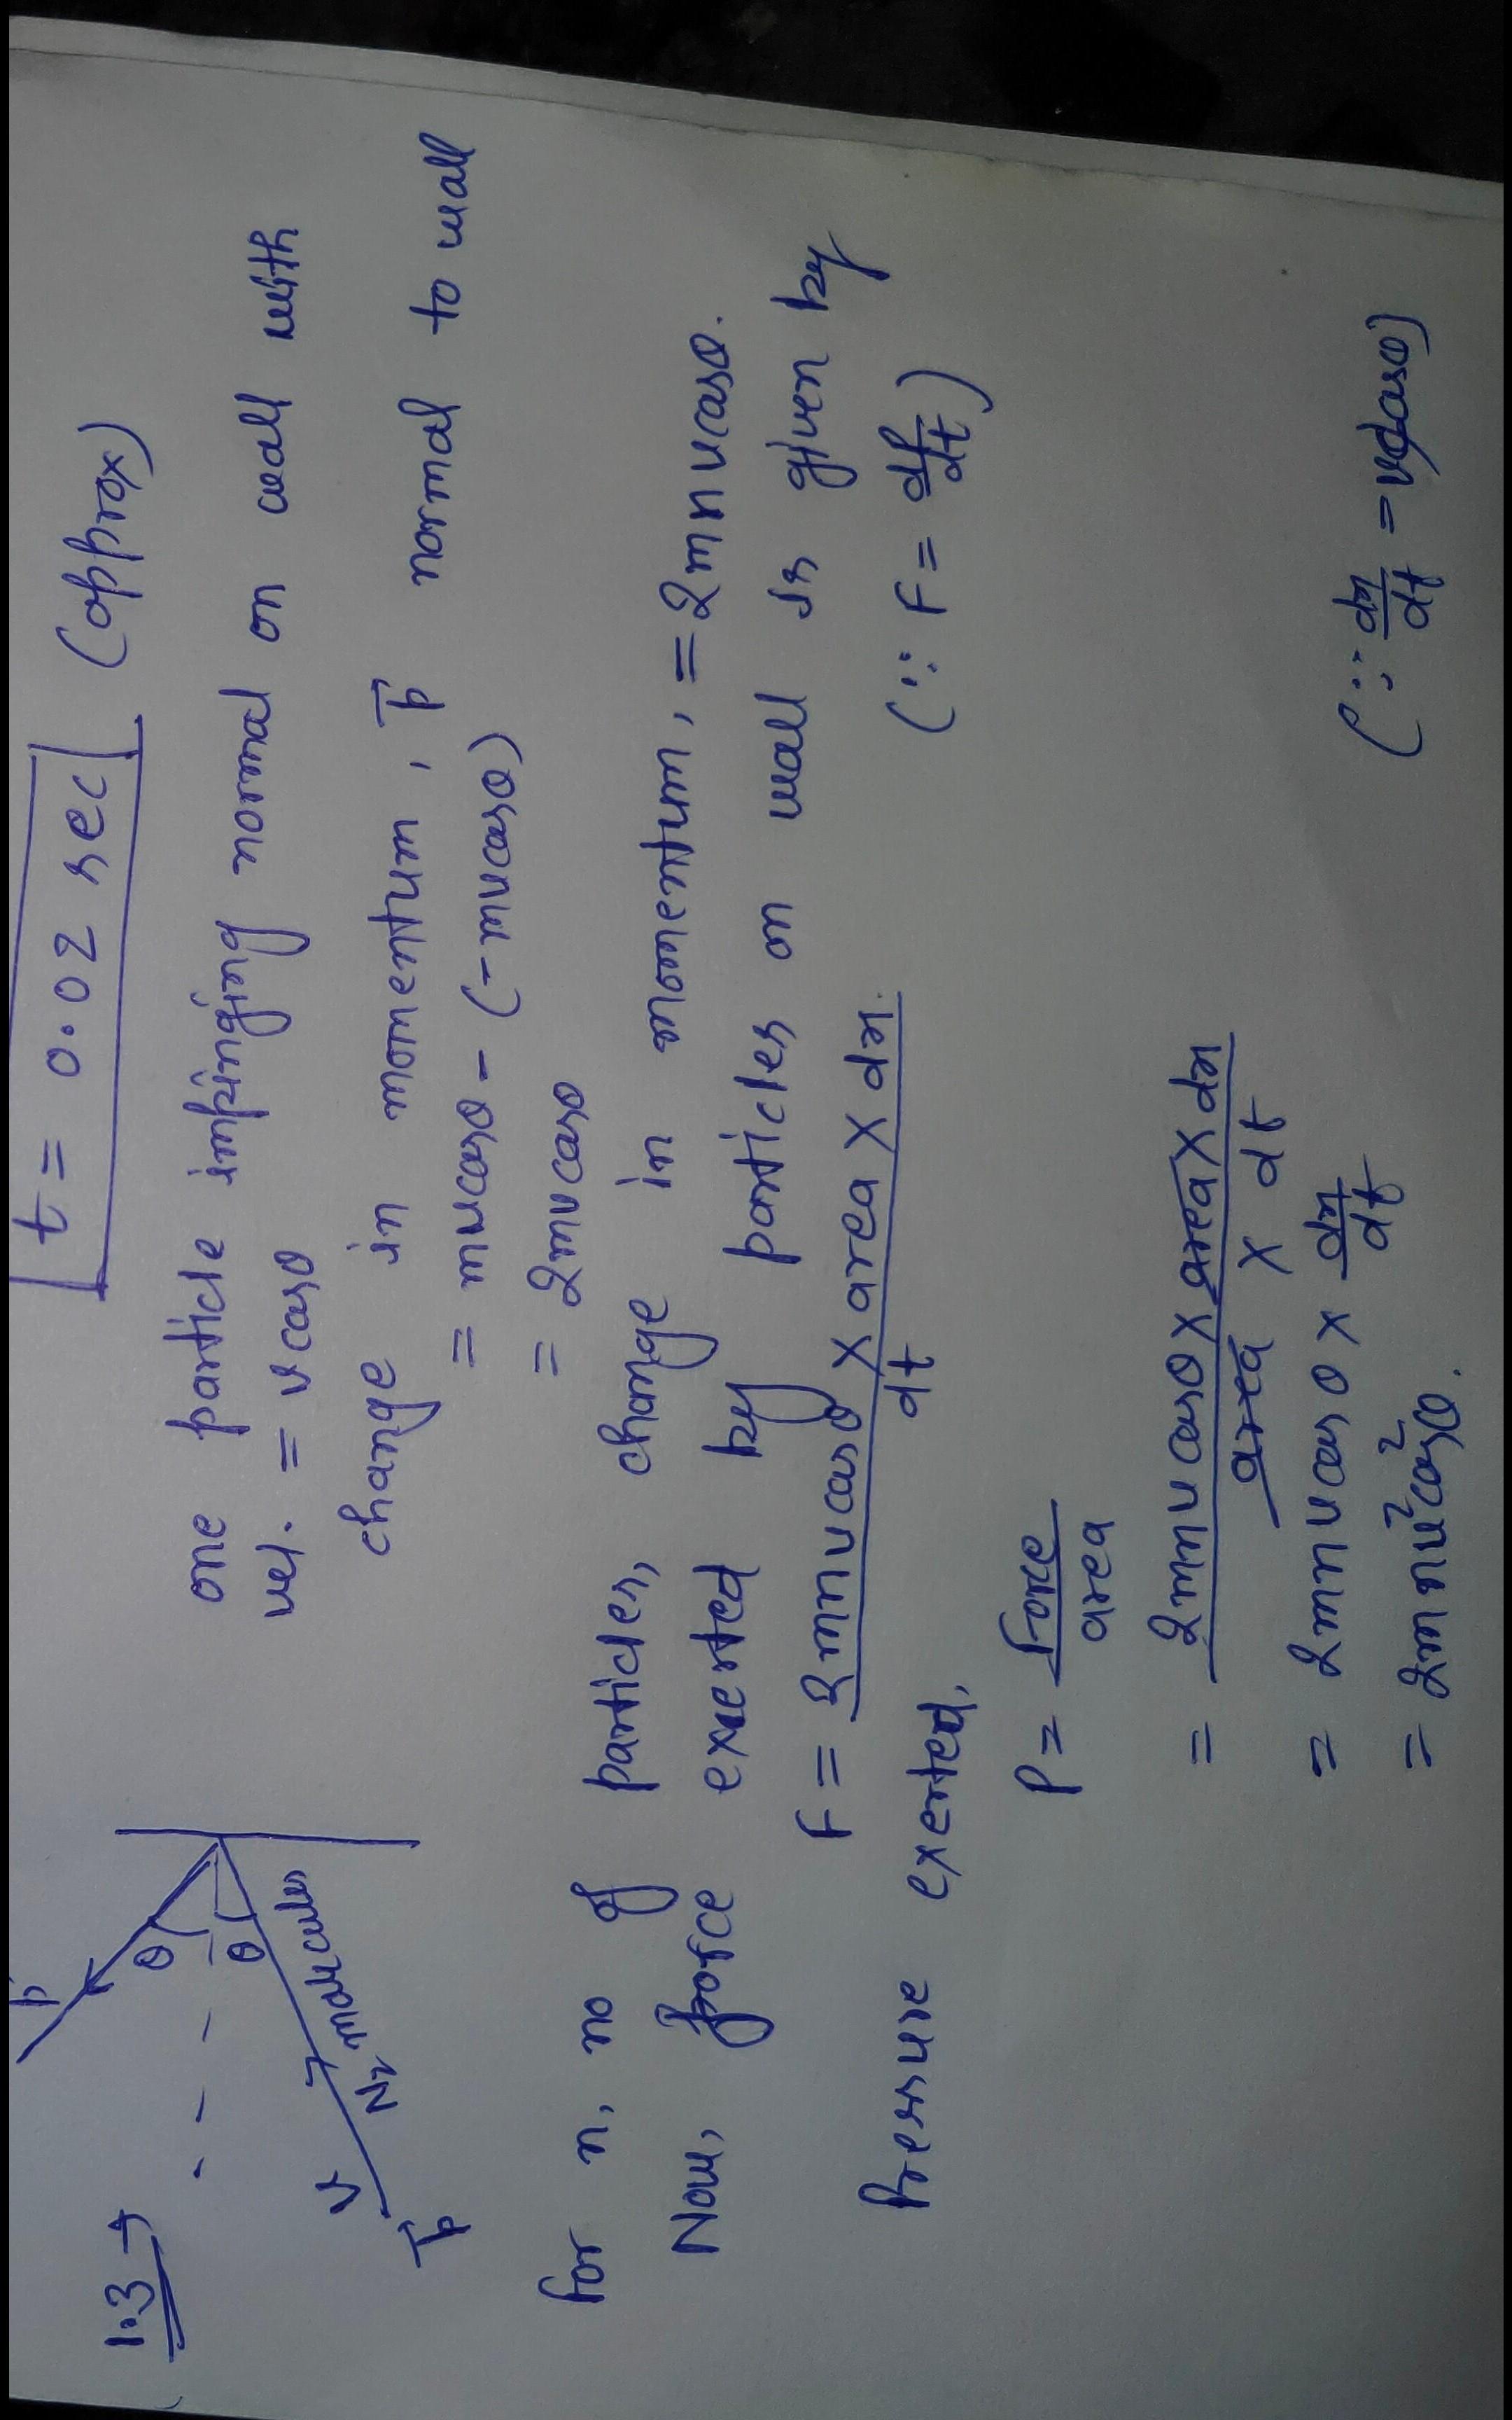 t = 0.02 sec (approx)
1.3 →
θ
θ
v
N₂ molecules
p⃗
one particle impinging normal on wall with
vel. = v cosθ
change in momentum, p⃗ normal to wall
= mvcosθ - (-mvcosθ)
= 2mvcosθ
for n, no of particles, change in momentum, = 2mnvcosθ.
Now, force exerted by particles on wall is given by
F = 2mnvcosθ × area × dx / dt (∵ F = dp/dt)
Pressure exerted,
P = Force / area
= 2mnvcosθ × area × dx / area × dt
= 2mnvcosθ × dx/dt
= 2mnv²cos²θ. (∵ dx/dt = vcosθ)